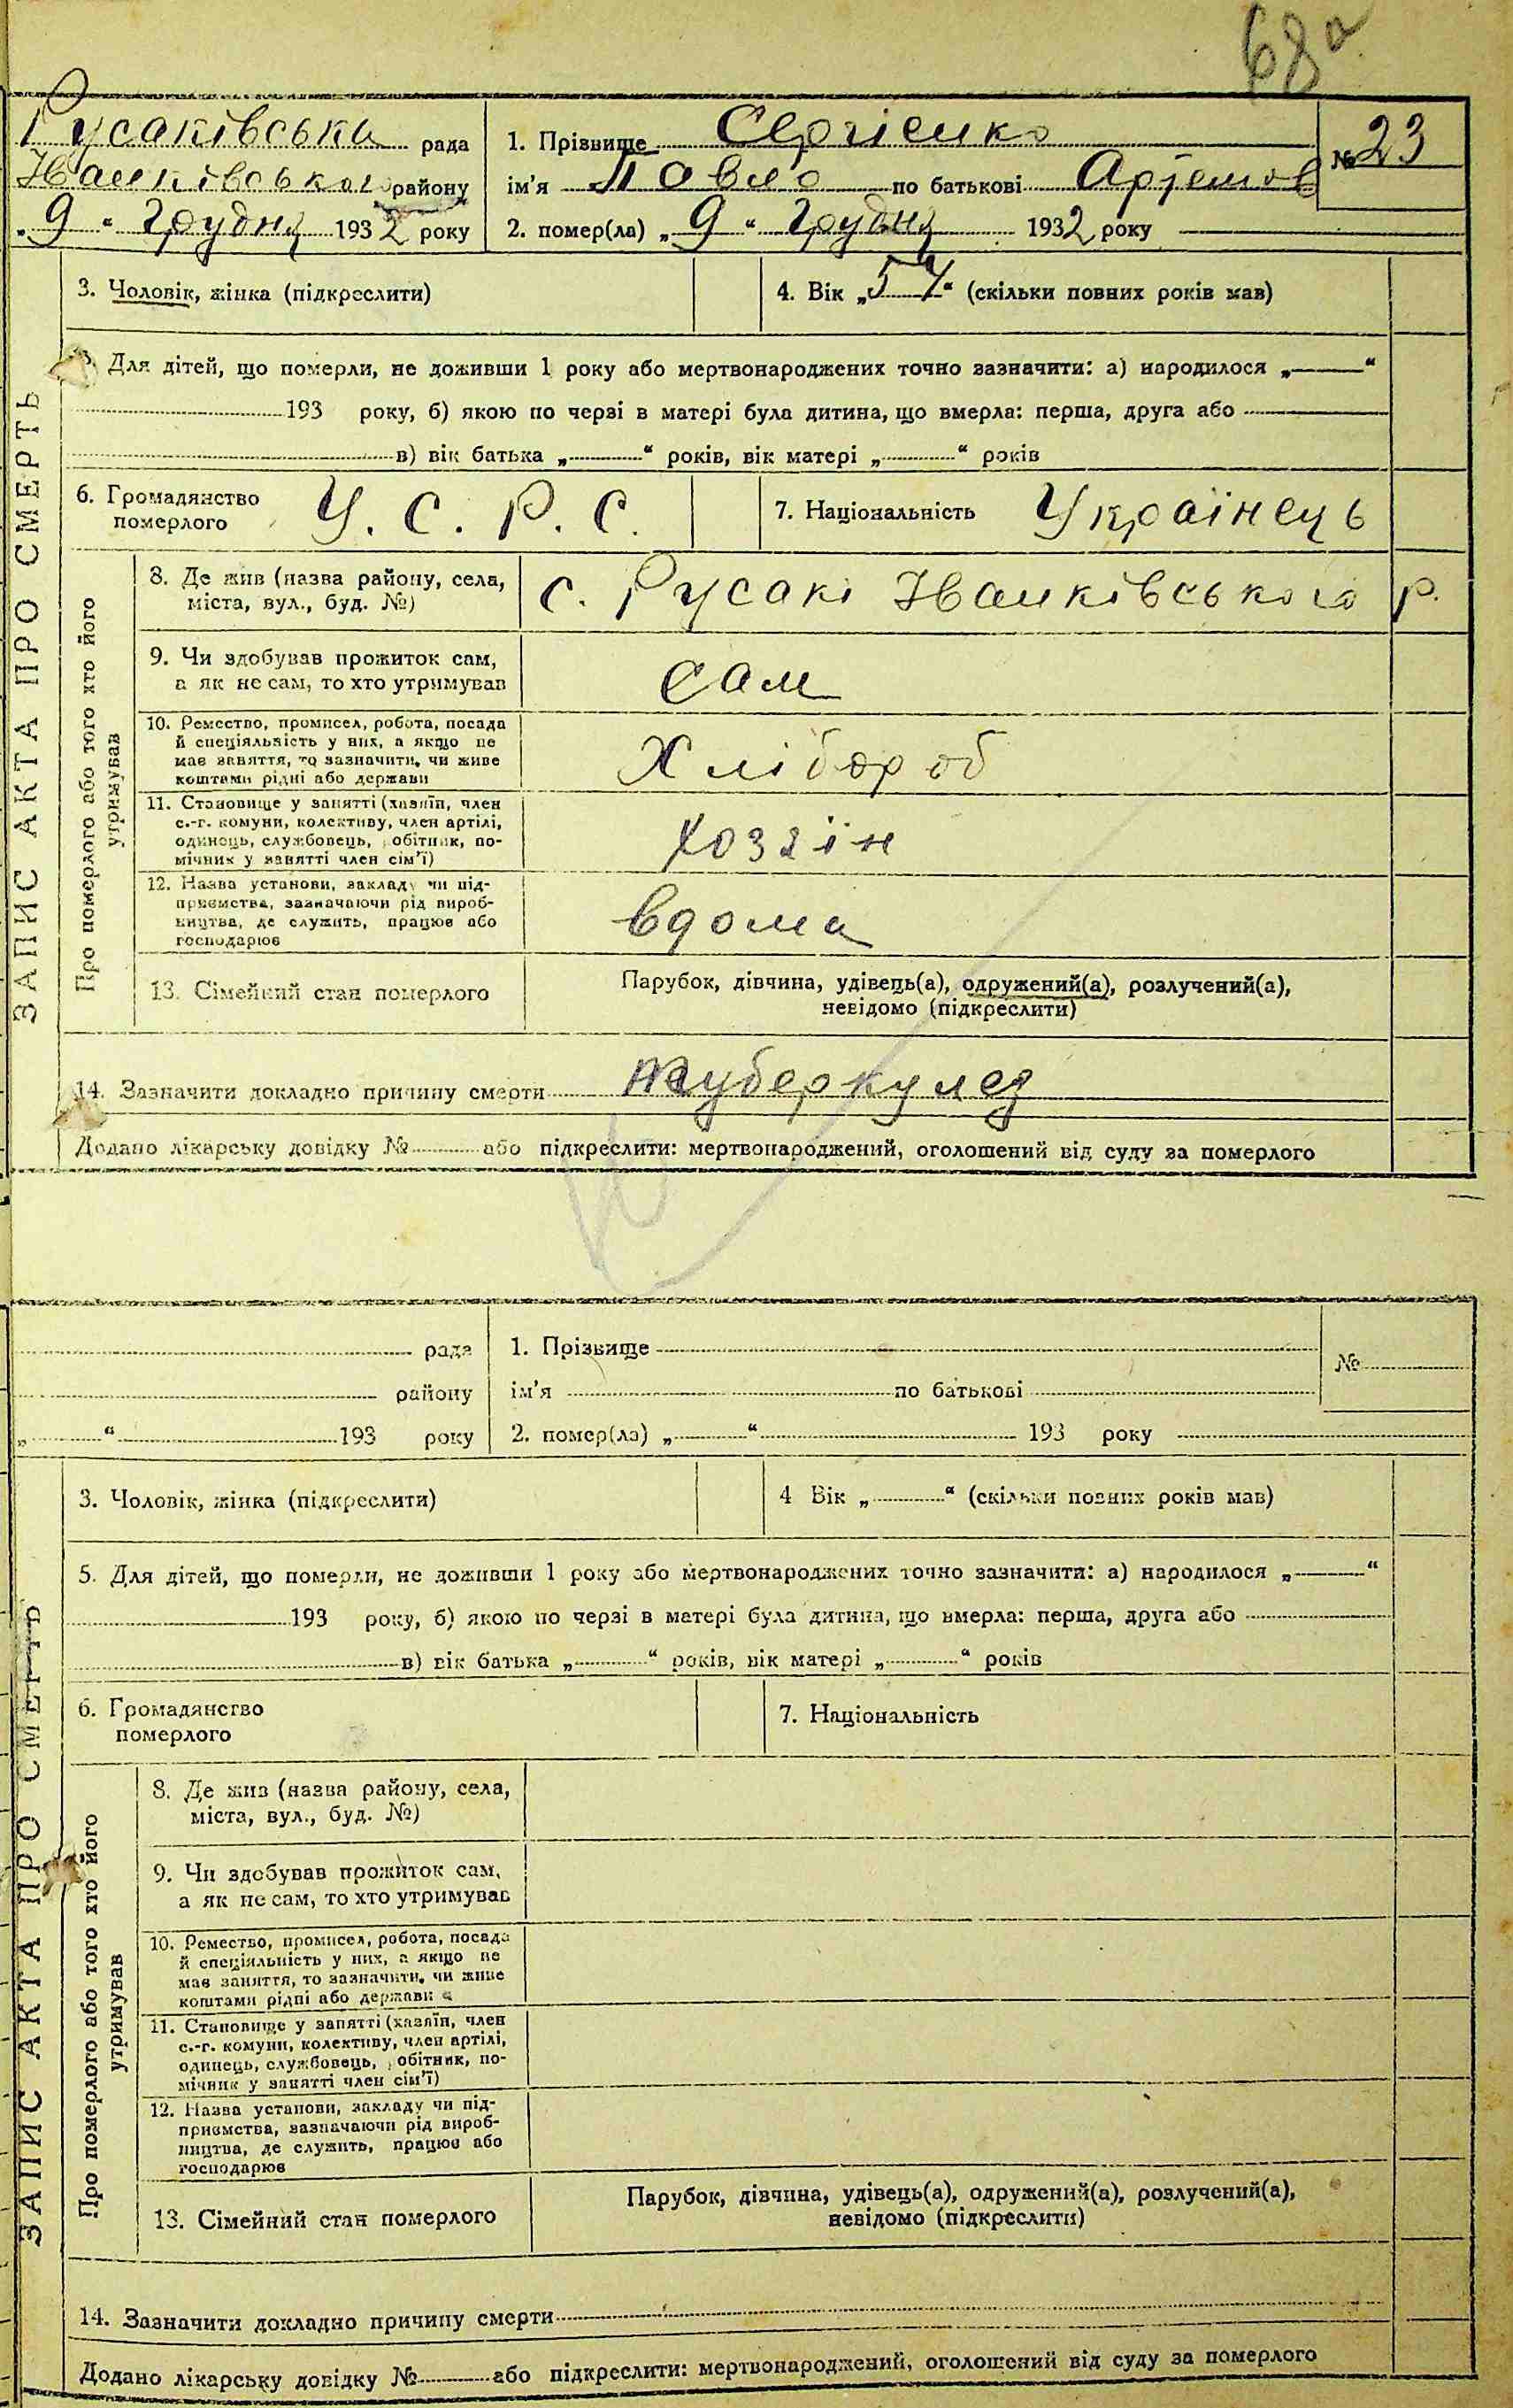 68а
Русаківська рада
Іванківського району
„9“ Грудня 1932 року
1. Прізвище Сергієнко
№ 23
ім'я Павло по батькові Артемов
2. помер(ла) „9“ Грудня 1932 року
ЗАПИС АКТА ПРО СМЕРТЬ
3. Чоловік, жінка (підкреслити)
4. Вік „57“ (скільки повних років мав)
Для дітей, що померли, не доживши 1 року або мертвонароджених точно зазначити: а) народилося „ “
193 року, б) якою по черзі в матері була дитина, що вмерла: перша, друга або
в) вік батька „ “ років, вік матері „ “ років
6. Громадянство
померлого
У. С. Р. С.
7. Національність Українець
Про померлого або того хто його
утримував
8. Де жив (назва району, села,
міста, вул., буд. №)
с. Русакі Іванківського р.
9. Чи здобував прожиток сам,
а як не сам, то хто утримував
сам
10. Ремество, промисел, робота, посада
й спеціяльність у них, а якщо не
має заняття, то зазначити, чи живе
коштами рідні або держави
Хлібороб
11. Становище у занятті (хазяїн, член
с.-г. комуни, колективу, член артілі,
одинець, службовець, обітник, по-
мічник у занятті член сім'ї)
хозяін
12. Назва установи, закладу чи під-
приємства, зазначаючи рід вироб-
ництва, де служить, працює або
господарює
вдома
13. Сімейний стан померлого
Парубок, дівчина, удівець(а), одружений(а), розлучений(а),
невідомо (підкреслити)
14. Зазначити докладно причину смерти туберкулез
Додано лікарську довідку № або підкреслити: мертвонароджений, оголошений від суду за померлого
рада
району
„ “ 193 року
1. Прізвище
№
ім'я по батькові
2. помер(ла) „ “ 193 року
ЗАПИС АКТА ПРО СМЕРТЬ
3. Чоловік, жінка (підкреслити)
4 Вік „ “ (скільки повних років мав)
5. Для дітей, що померли, не доживши 1 року або мертвонароджених точно зазначити: а) народилося „ “
193 року, б) якою по черзі в матері була дитина, що вмерла: перша, друга або
в) вік батька „ “ років, вік матері „ “ років
6. Громадянство
померлого
7. Національність
Про померлого або того хто його
утримував
8. Де жив (назва району, села,
міста, вул., буд. №)
9. Чи здобував прожиток сам,
а як не сам, то хто утримував
10. Ремество, промисел, робота, посада
й спеціяльність у них, а якщо не
має заняття, то зазначити, чи живе
коштами рідні або держави
11. Становище у занятті (хазяїн, член
с.-г. комуни, колективу, член артілі,
одинець, службовець, обітник, по-
мічник у занятті член сім'ї)
12. Назва установи, закладу чи під-
приємства, зазначаючи рід вироб-
ництва, де служить, працює або
господарює
13. Сімейний стан померлого
Парубок, дівчина, удівець(а), одружений(а), розлучений(а),
невідомо (підкреслити)
14. Зазначити докладно причину смерти
Додано лікарську довідку № або підкреслити: мертвонароджений, оголошений від суду за померлого